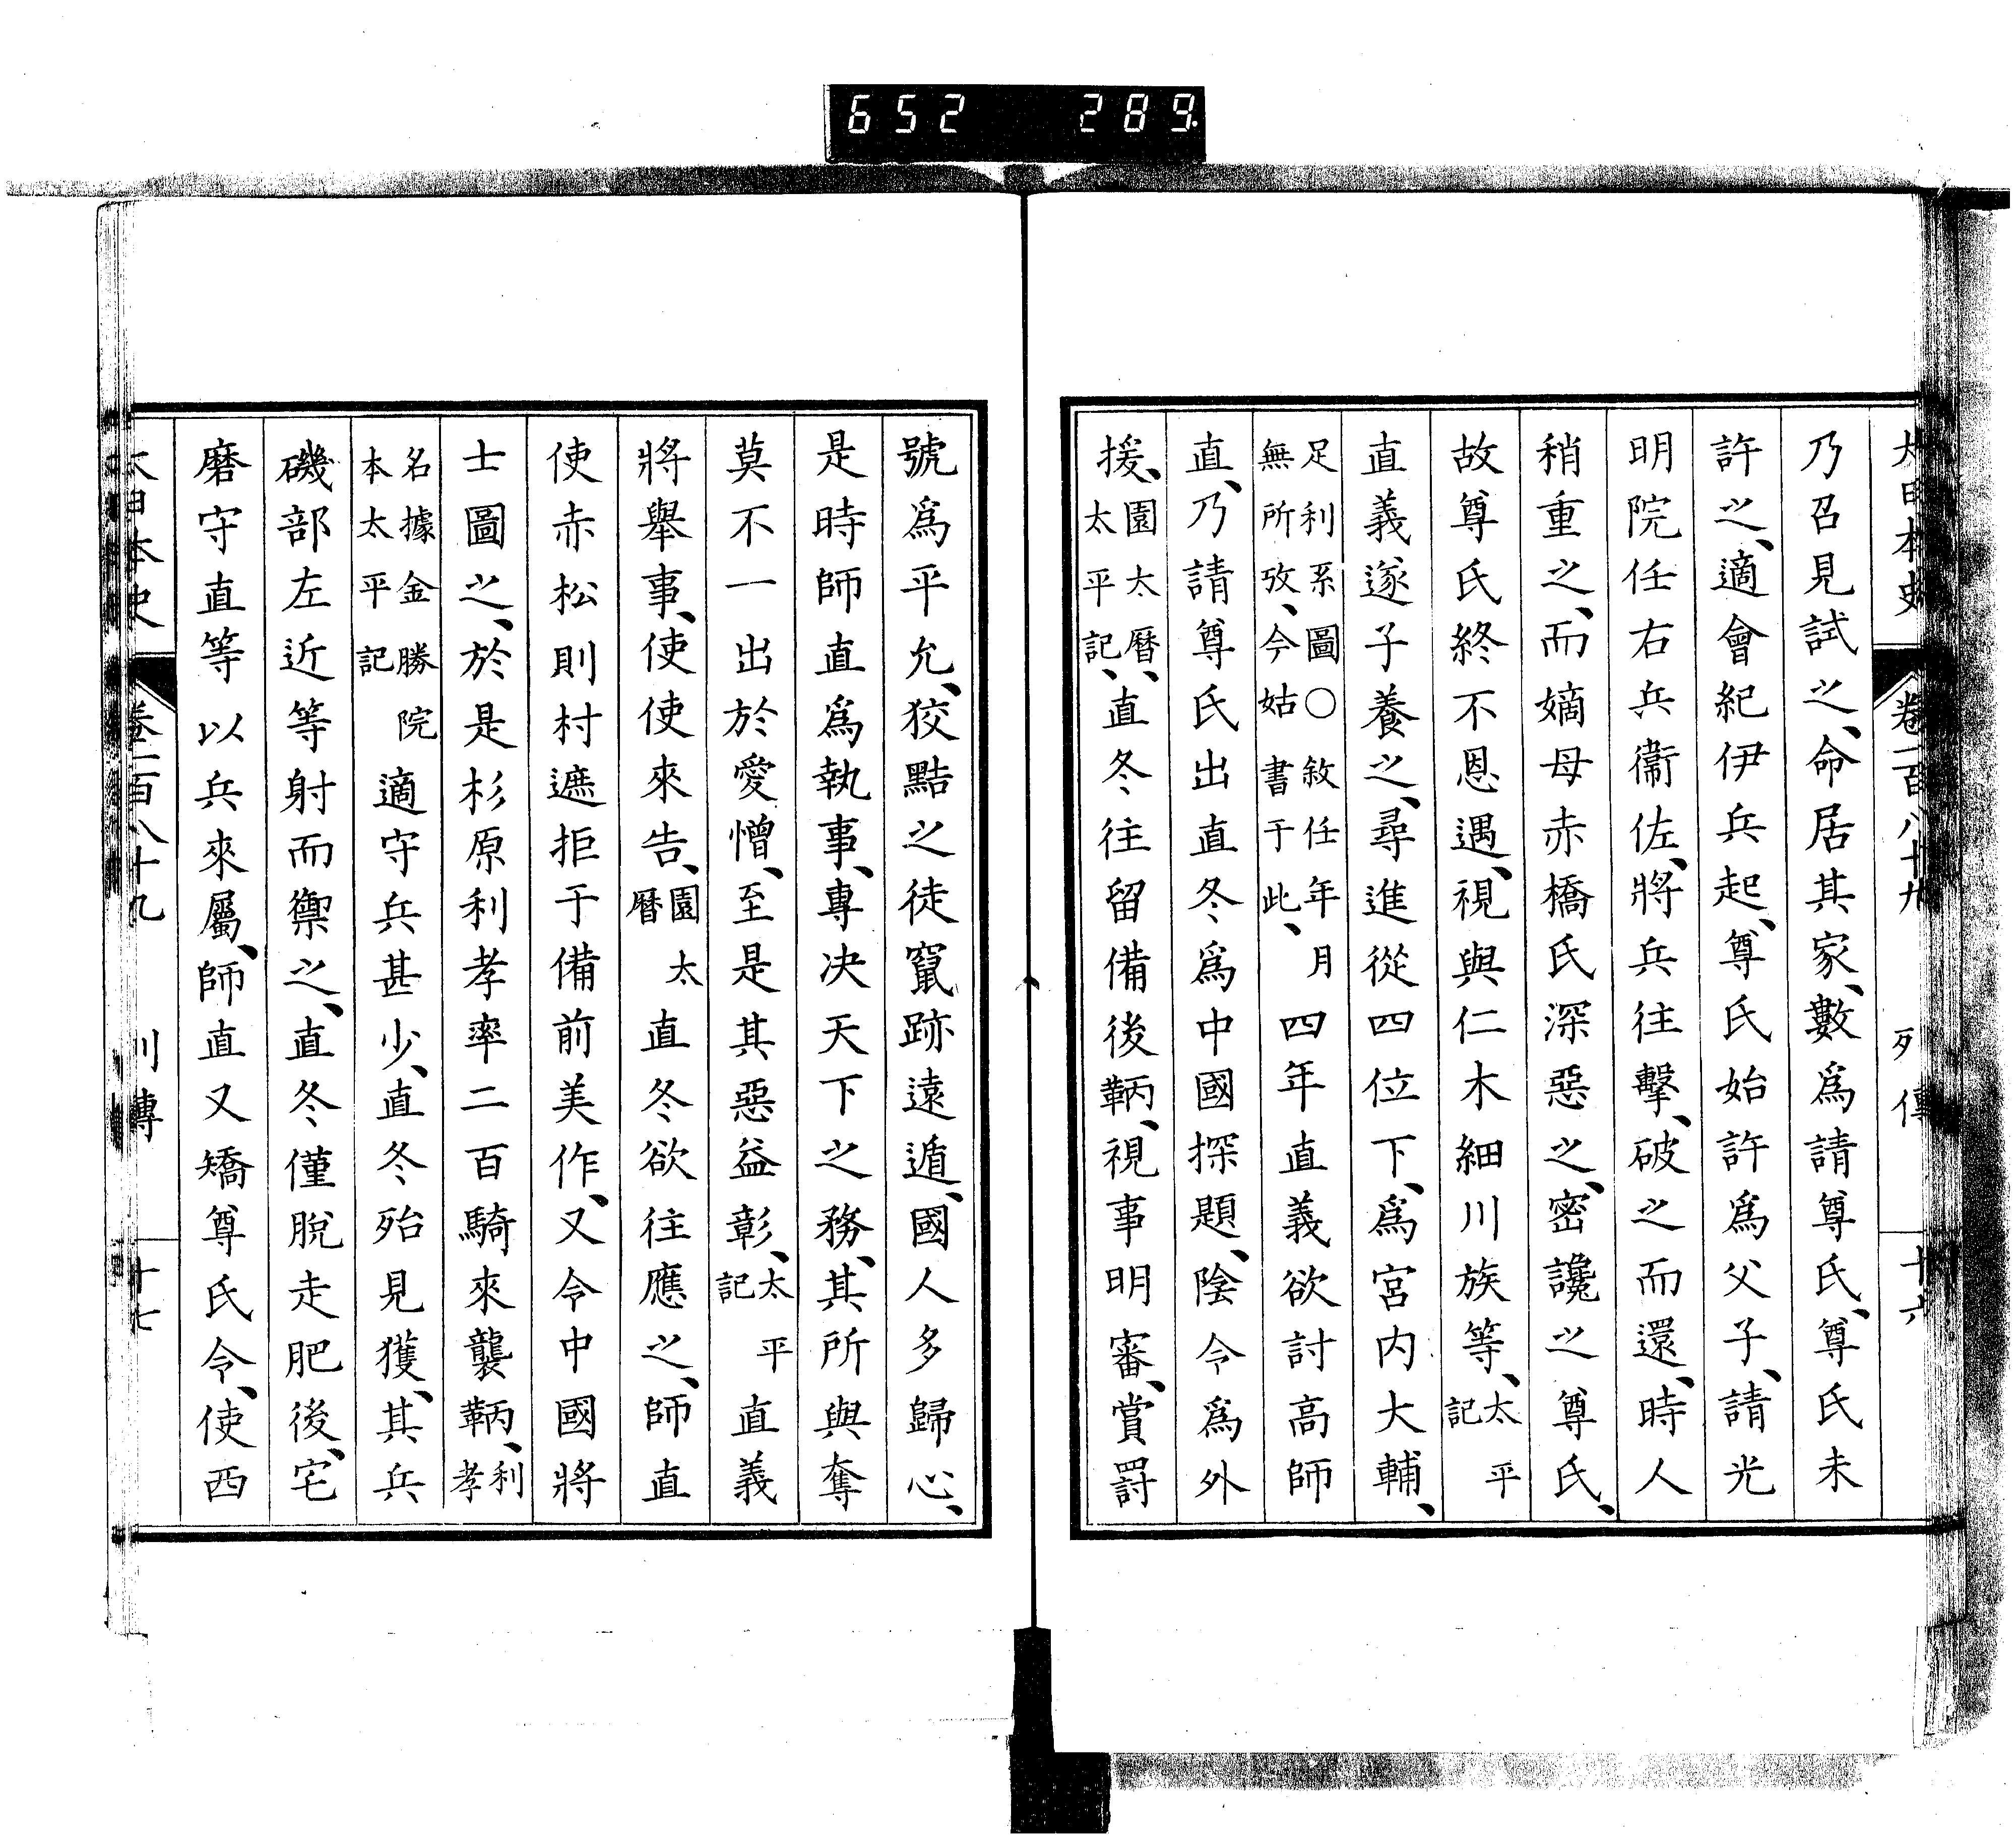 652 289.
大日本史 卷一百八十九 列傳 十六
乃召見試之、命居其家、數爲請尊氏、尊氏未
許之、適會紀伊兵起、尊氏始許爲父子、請光
明院任右兵衞佐、將兵往擊、破之而還、時人
稍重之、而嫡母赤橋氏深惡之、密讒之尊氏、
故尊氏終不恩遇、視與仁木細川族等、太平記
直義遂子養之、尋進從四位下、爲宮内大輔、
足利系圖○敘任年月無所攷、今姑書于此、四年直義欲討高師
直、乃請尊氏出直冬爲中國探題、陰令爲外
援、園太曆、太平記、直冬往留備後鞆、視事明審、賞罰
號爲平允、狡黠之徒竄跡遠遁、國人多歸心、
是時師直爲執事、專决天下之務、其所與奪
莫不一出於愛憎、至是其惡益彰、太平記直義
將舉事、使使來告、園太曆直冬欲往應之、師直
使赤松則村遮拒于備前美作、又令中國將
士圖之、於是杉原利孝率二百騎來襲鞆、利孝
名據金勝院本太平記適守兵甚少、直冬殆見獲、其兵
磯部左近等射而禦之、直冬僅脫走肥後、宅
磨守直等以兵來屬、師直又矯尊氏令、使西
大日本史 卷一百八十九 列傳 十七